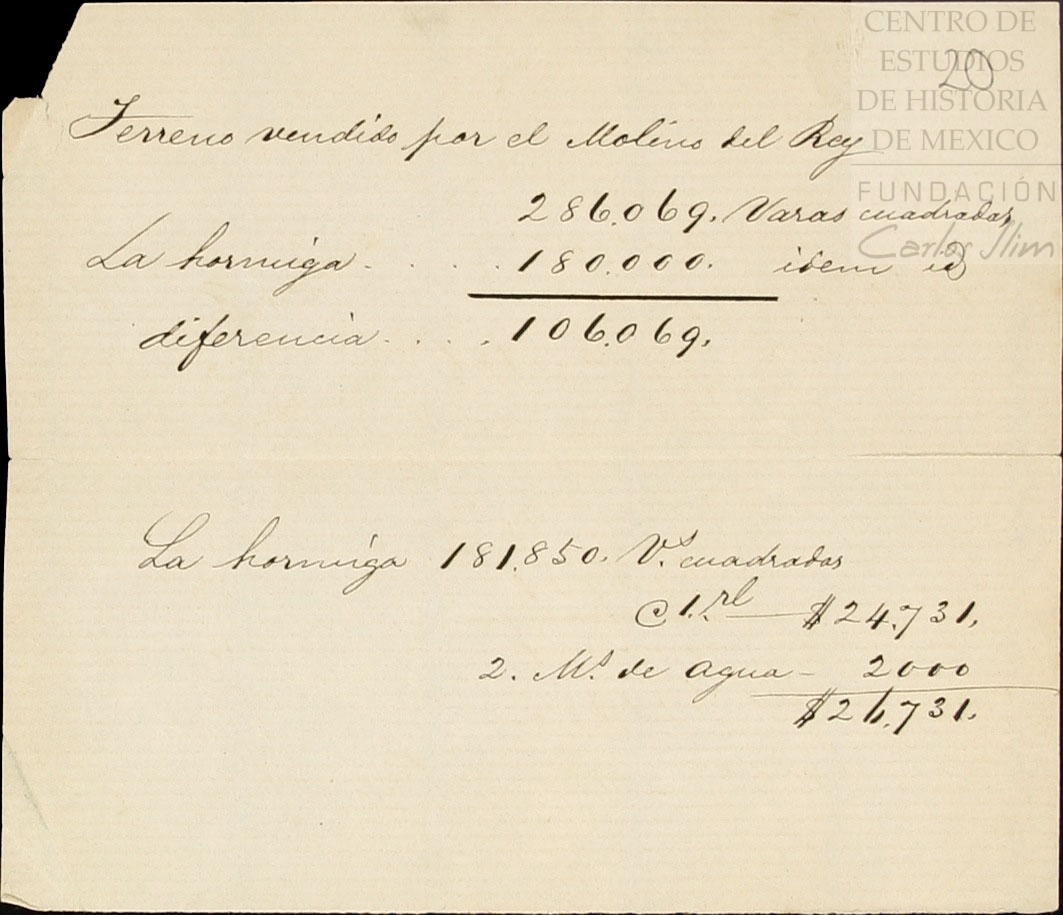 CENTRO DE
ESTUDIOS
DE HISTORIA
DE MEXICO
FUNDACIÓN
Carlos Slim
20
Terreno vendido por el Molino del Rey
286.069. Varas cuadradas
La hormiga . . . . . 180.000. idem id
diferencia . . . . 106.069.
La hormiga 181.850. Vs. cuadradas
@ 1. rl — $24.731.
2. Ms. de agua - 2000
$26.731.